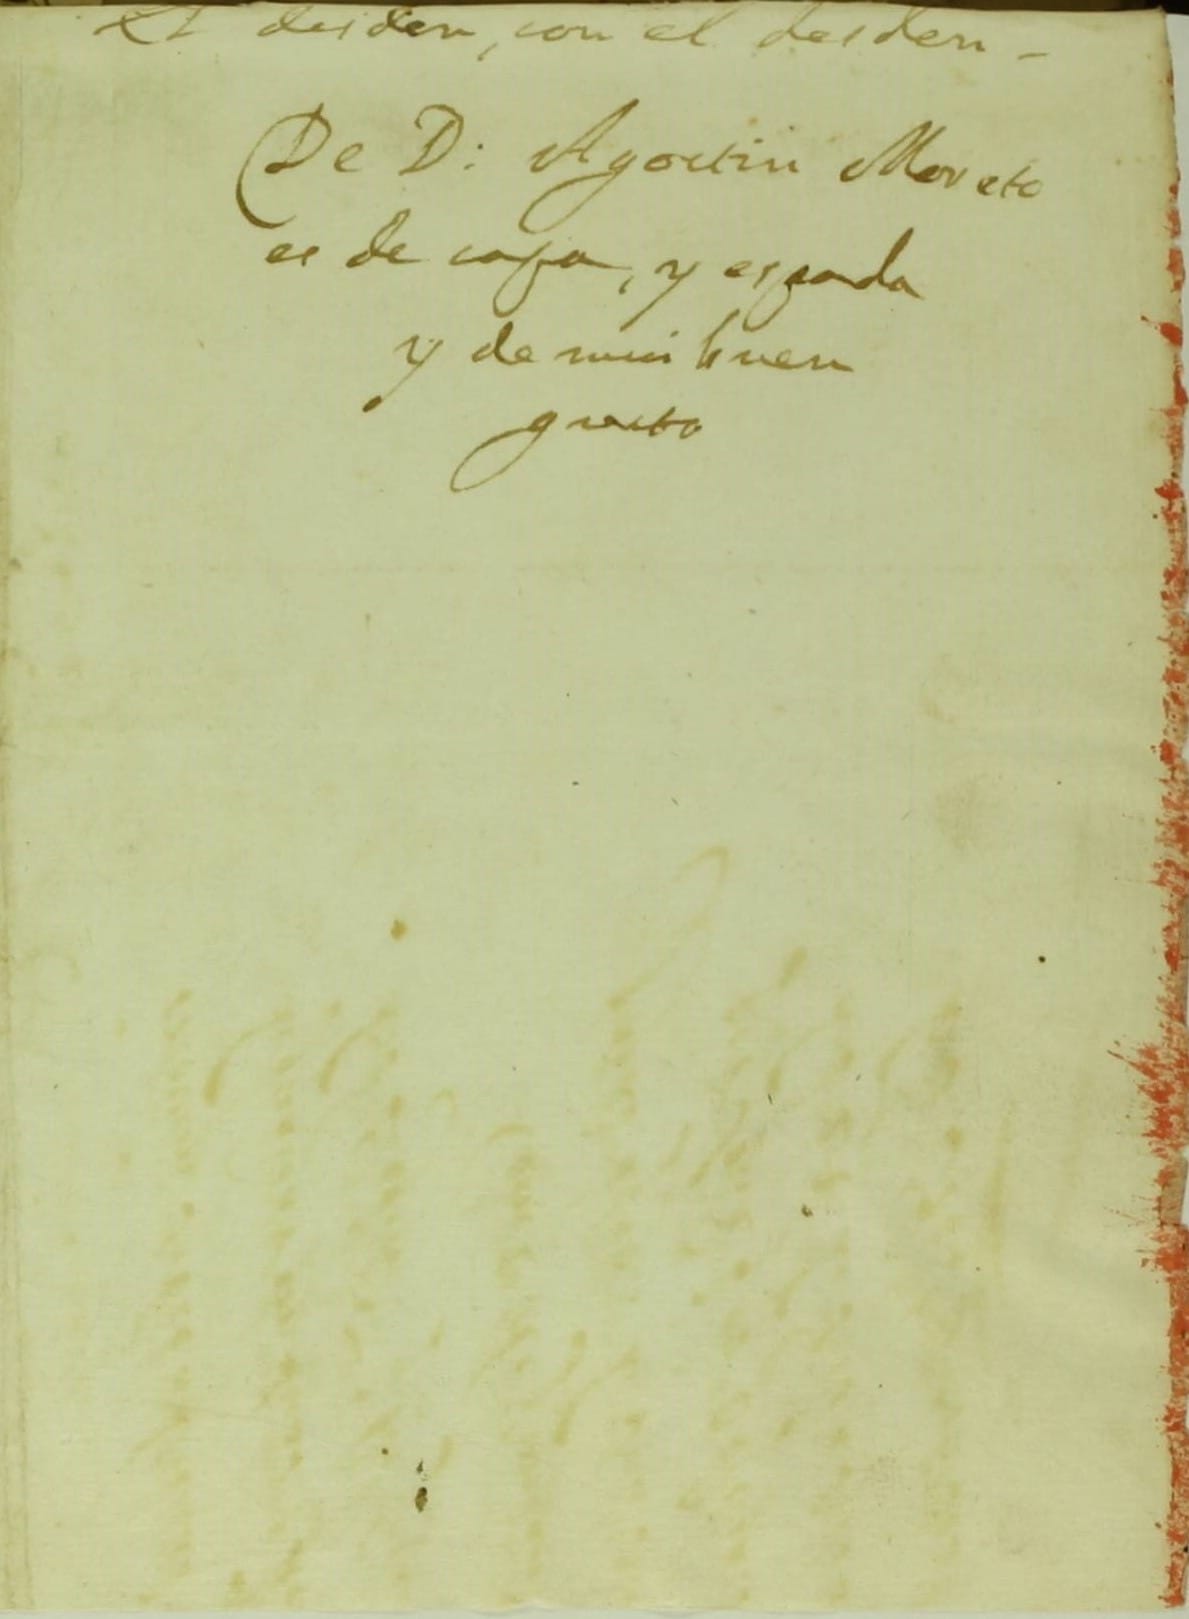 El desden, con el desden -
De D: Agostin Moreto
es de capa, y espada
y de mui buen
gusto